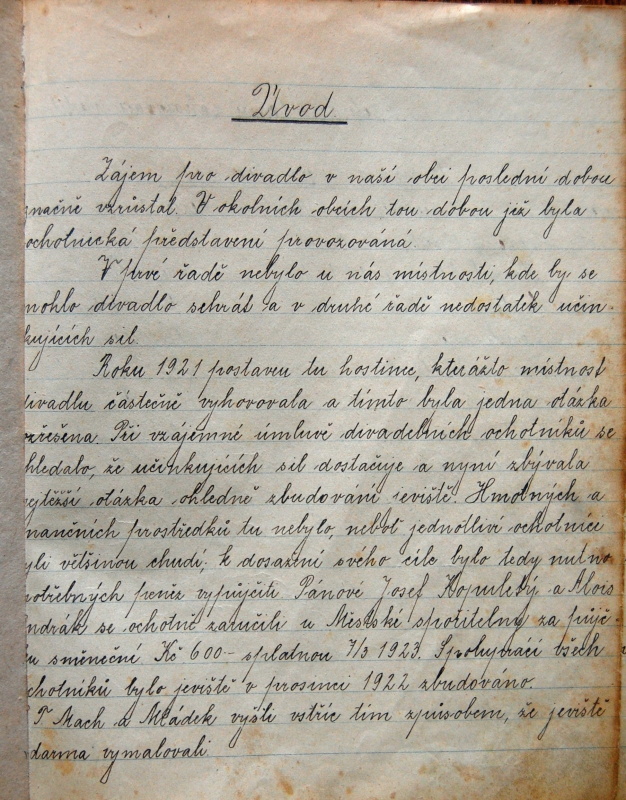 Úvod
Zájem pro divadlo v naší obci poslední dobou
značně vzrůstal. V okolních obcích tou dobou již byla
ochotnická představení provozována.
V prvé řadě nebylo u nás místnosti, kde by se
mohlo divadlo sehrát a v druhé řadě nedostatek účin-
kujících sil.
Roku 1921 postaven tu hostinec, kterážto místnost
divadlu částečně vyhovovala a tímto byla jedna otázka
rozřešena. Při vzájemné úmluvě divadelních ochotníků se
shledalo, že účinkujících sil dostačuje a nyní zbývala
nejtěžší otázka ohledně zbudování jeviště. Hmotných a
finančních prostředků tu nebylo, neboť jednotliví ochotníci
byli většinou chudí; k dosažení svého cíle bylo tedy nutno
potřebných peněz vypůjčiti. Pánové Josef a Alois
se ochotně zaručili u Městské spořitelny za půjč-
ku směneční Kč 600- splatnou 7/3 1923. Spoluprací všech
ochotníků bylo jeviště v prosinci 1922 zbudováno.
Mach a Mládek vyšli vstříc tím způsobem, že jeviště
zdarma vymalovali.